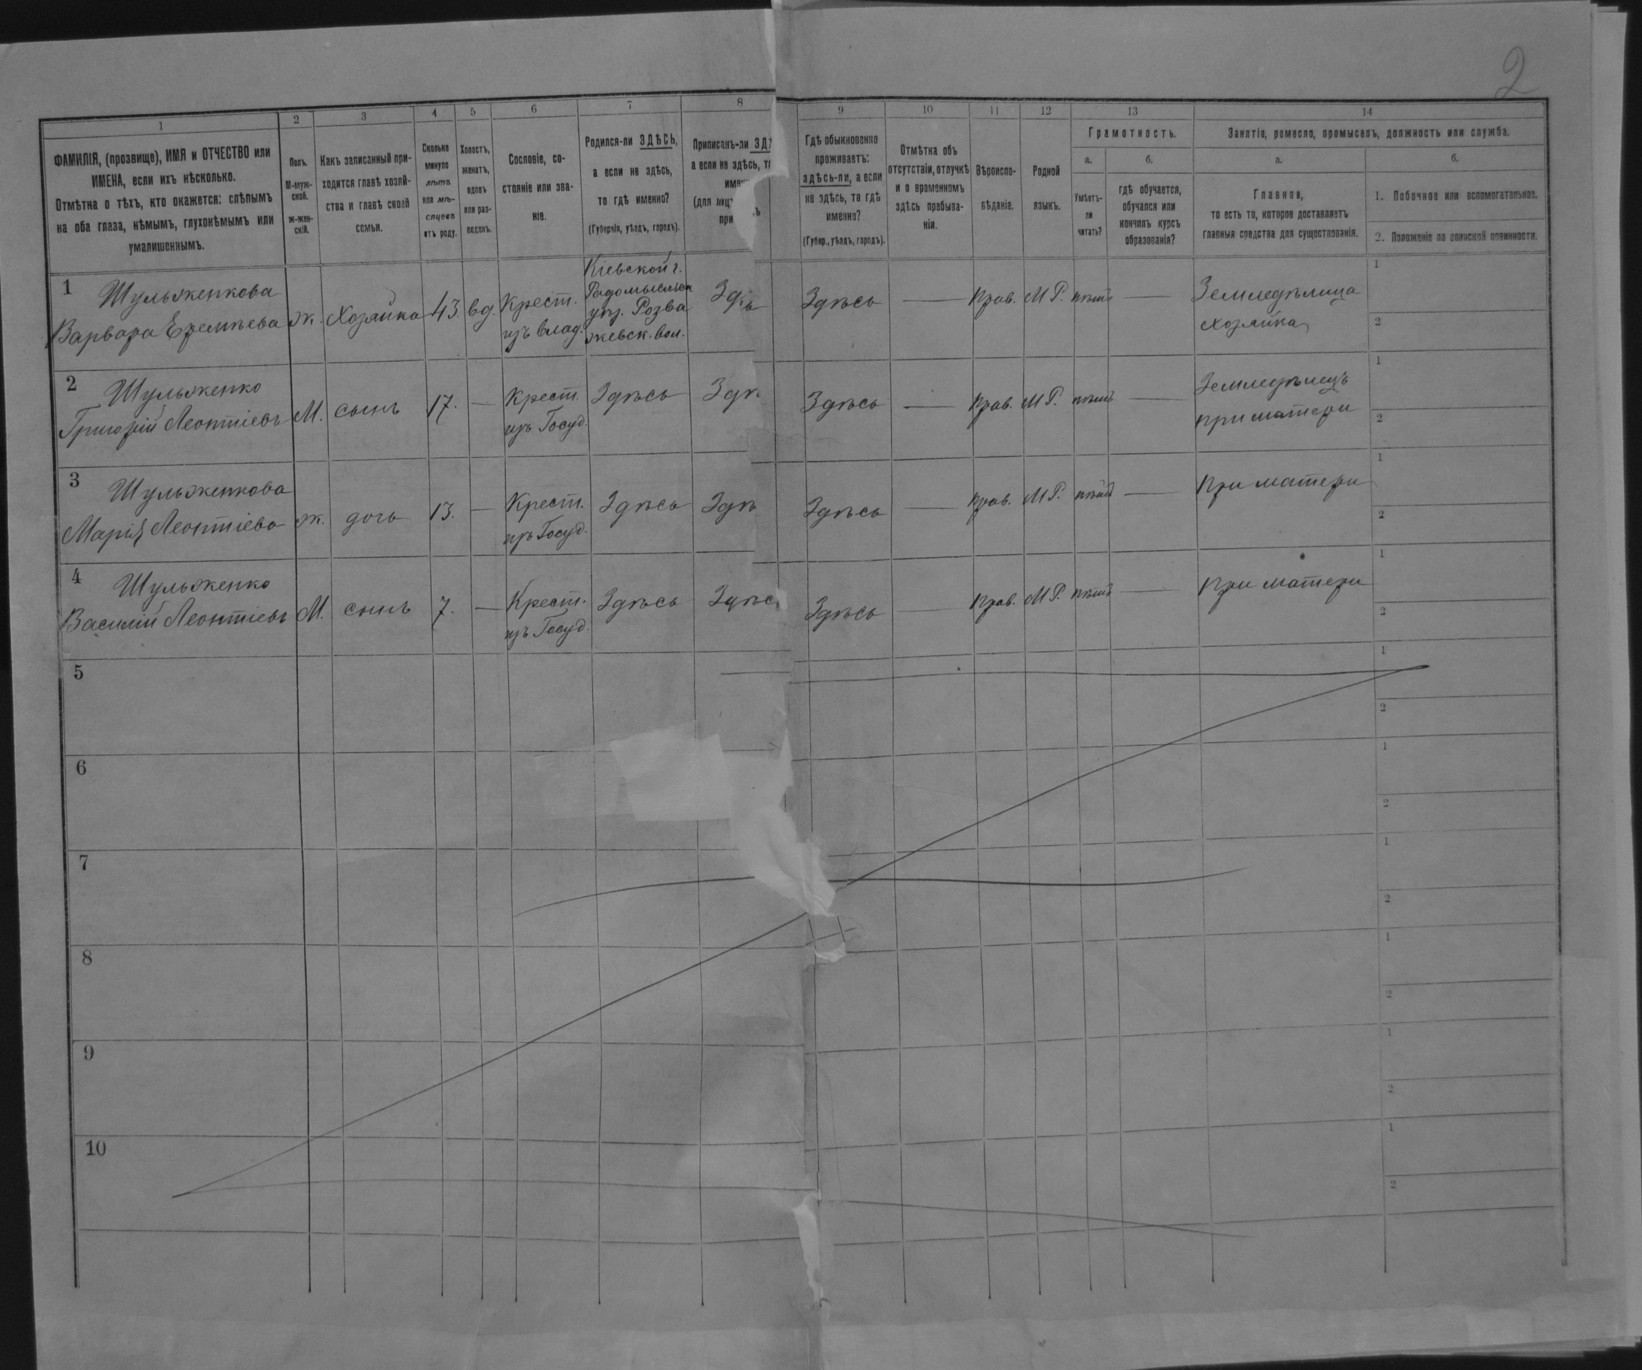 2
1
2
3
4
5
6
7
8
9
10
11
12
13
14
ФАМИЛІЯ, (прозвище), ИМЯ и ОТЧЕСТВО или
ИМЕНА, если ихъ нѣсколько.
Отмѣтка о тѣхъ, кто окажется: слѣпымъ
на оба глаза, нѣмымъ, глухонѣмымъ или
умалишеннымъ.
Полъ.
М-муж-
ской.
Ж-жен-
скій.
Какъ записанный при-
ходится главѣ хозяй-
ства и главѣ своей
семьи.
Сколько
минуло
лѣтъ
или мѣ-
сяцевъ
отъ роду.
Холостъ,
женатъ,
вдовъ
или раз-
веденъ.
Сословіе, со-
стояніе или зва-
ніе.
Родился-ли ЗДѢСЬ,
а если не здѣсь,
то гдѣ именно?
(Губернія, уѣздъ, городъ).
Приписанъ-ли ЗД
а если не здѣсь, т
Гдѣ обыкновенно
проживаетъ:
здѣсь-ли, а если
не здѣсь, то гдѣ
именно?
(Губер., уѣздъ, городъ).
Отмѣтка объ
отсутствіи, отлучкѣ
и о временномъ
здѣсь пребыва-
ніи.
Вѣроиспо-
вѣданіе.
Родной
языкъ.
Грамотность.
а.
Умѣетъ-
ли
читать?
б.
гдѣ обучается,
обучался или
кончилъ курсъ
образованія?
Занятіе, ремесло, промыселъ, должность или служба.
а.
Главное,
то есть то, которое доставляетъ
главныя средства для существованія.
б.
1. Побочное или вспомогательное.
2. Положеніе по воинской повинности.
1 Шульженкова
Варвара Еремѣева
ж.
хозяйка
43.
вд.
Крест.
изъ влад.
Кіевской г.
Радомысльск
уѣз. Розва
жевск. вол.
Здѣсь
—
Прав.
М Р.
нѣтъ
—
Земледѣлица
хозяйка
1
2
2 Шульженко
Григорій Леонтіевъ
М.
сынъ
17.
—
Крест.
изъ Госуд.
Здѣсь
Здѣ
Здѣсь
—
Прав.
М Р.
нѣтъ
—
Земледѣлецъ
при матери
1
2
3 Шульженкова
Марія Леонтіева
ж.
дочь
13.
—
Крест.
изъ Госуд.
Здѣсь
Здѣ
Здѣсь
—
Прав.
М Р.
нѣтъ
—
При матери
1
2
4 Шульженко
Василій Леонтіевъ
М.
сынъ
7.
—
Крест.
изъ Госуд.
Здѣсь
Здѣс
Здѣсь
—
Прав.
М Р.
нѣтъ
—
При матери
1
2
5
1
2
6
1
2
7
1
2
8
1
2
9
1
2
10
1
2